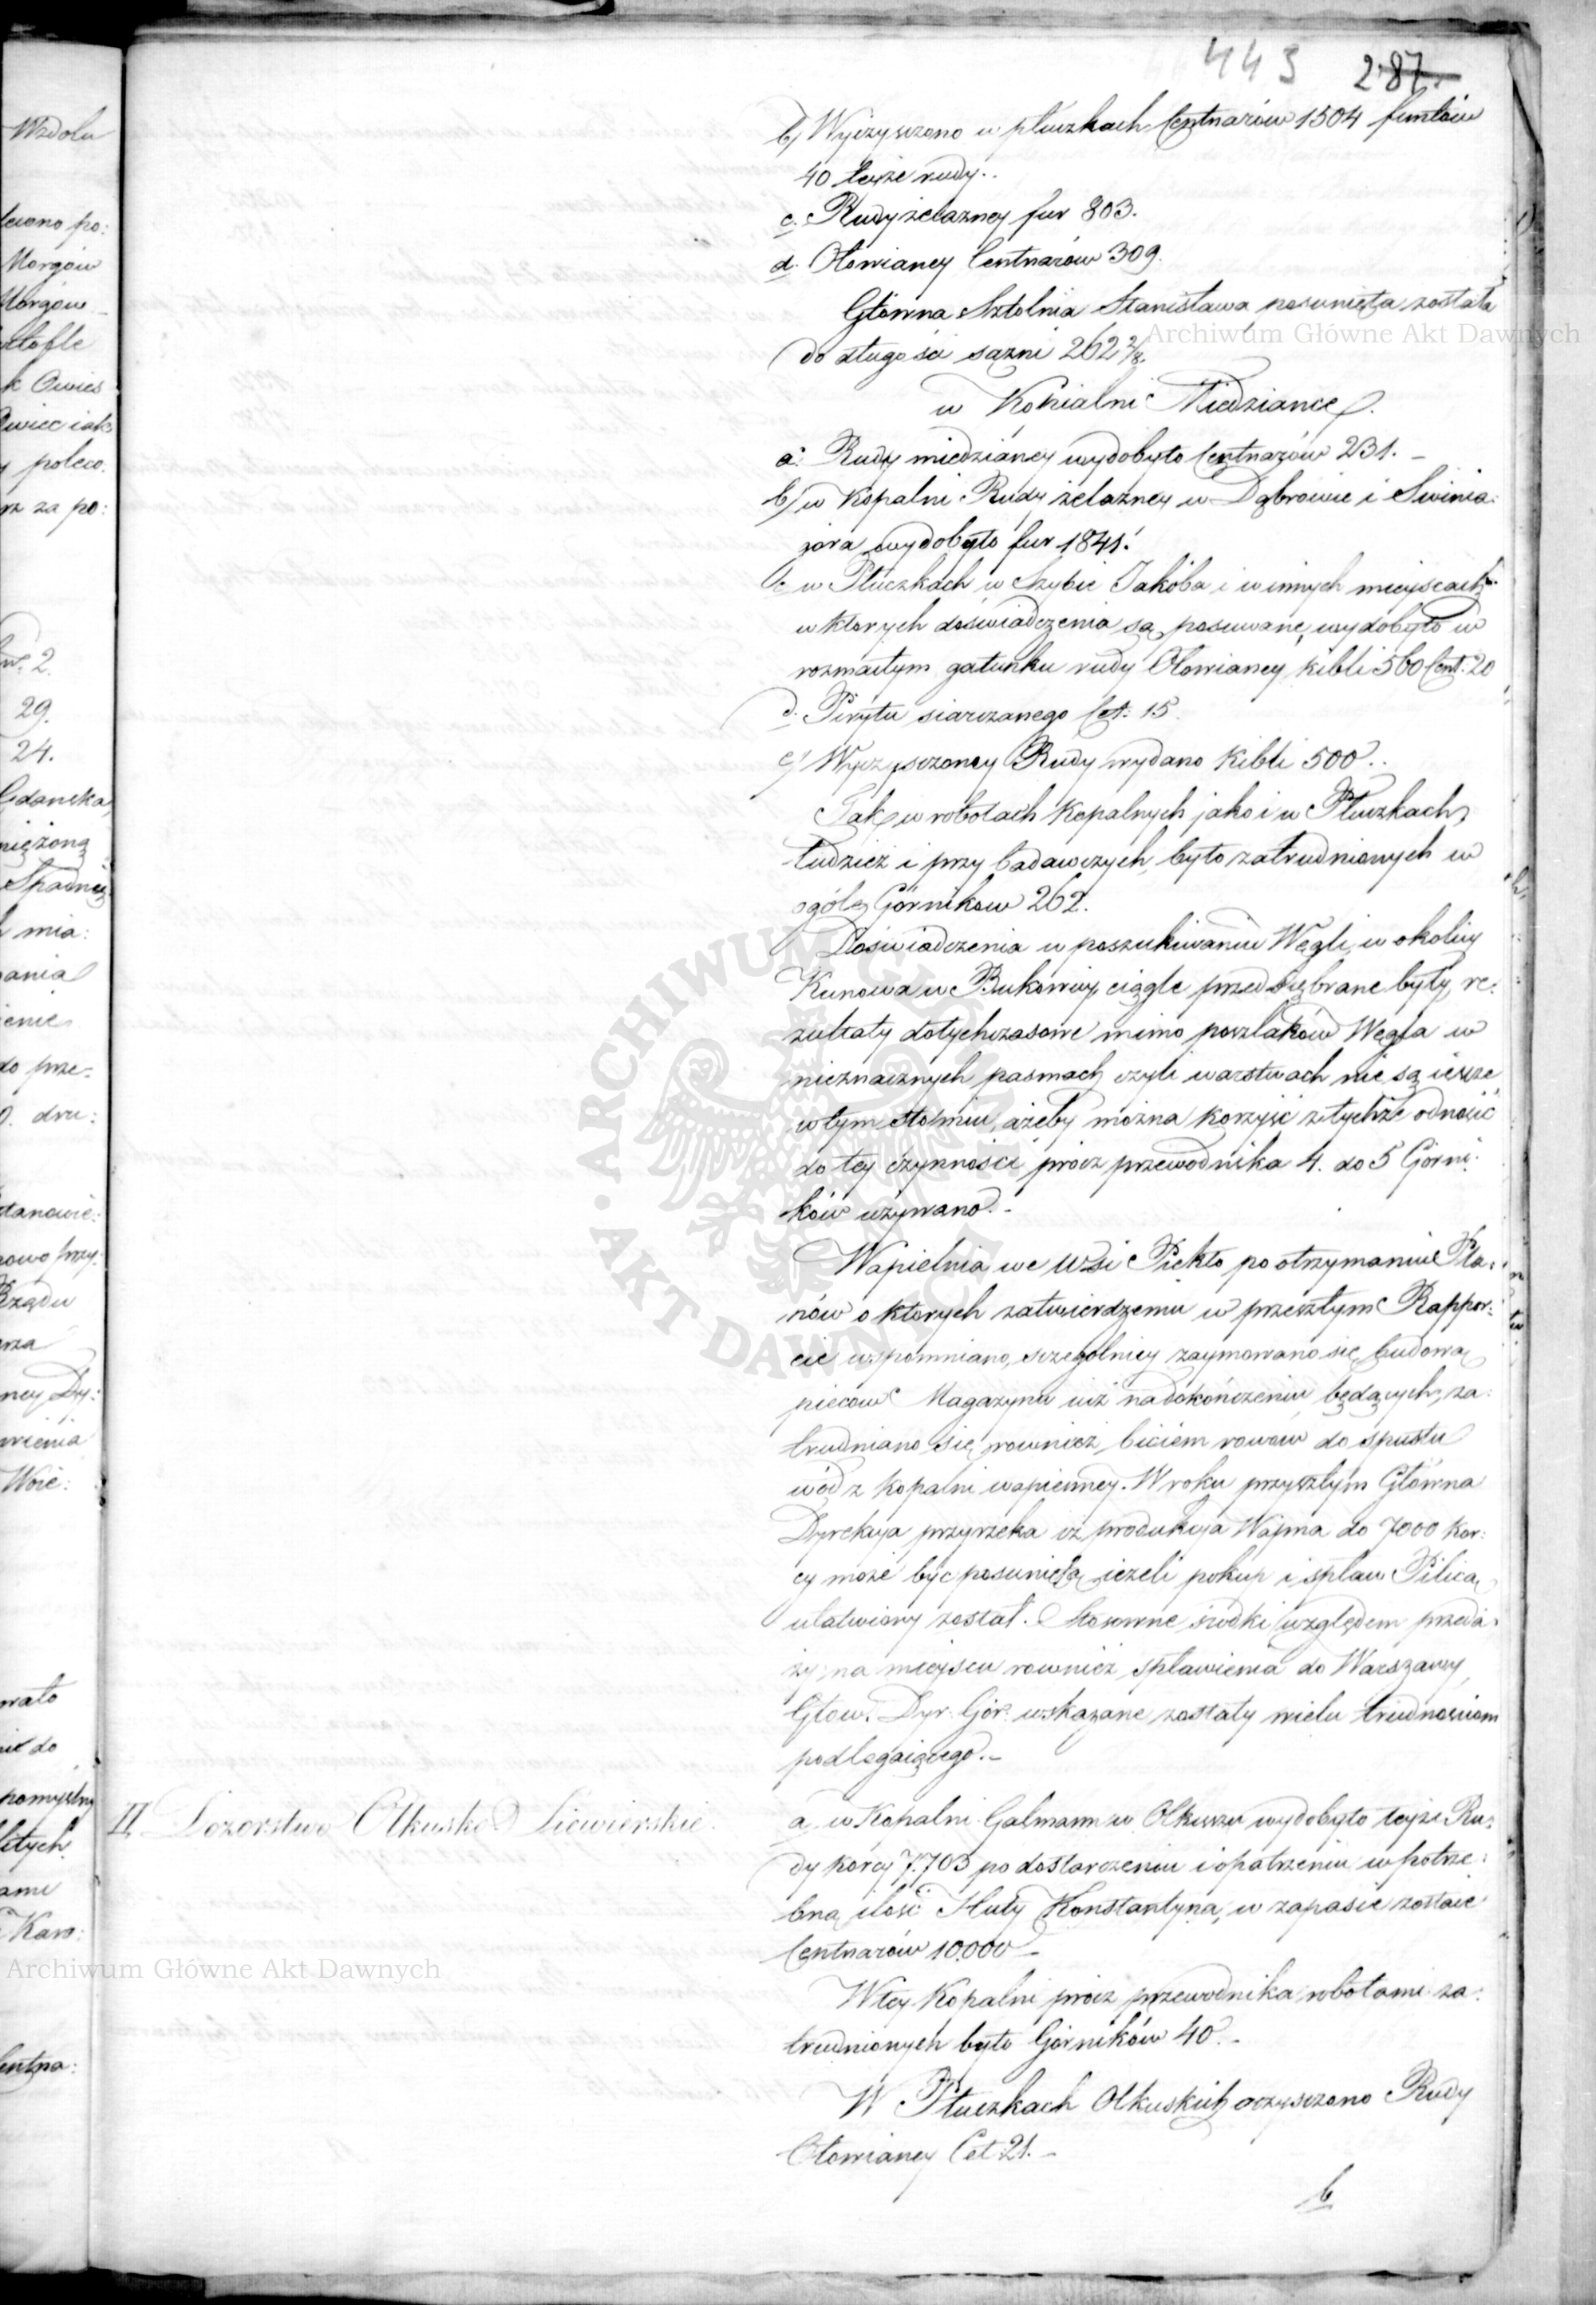 443 287.
b/ Wyczyszczono w płuczkach Centnarów 1504 funtów
40 teyże rudy..
c. Rudy żelazney fur 803.
d. Ołowianey Centnarów 309.
Główna Sztolnia Stanisława posunięta została
do długości sążni 262 2/8.
w Kopialni Miedziance.
a. Rudy miedzianey wydobyto Centnarów 231. –
b/ w Kopalni Rudy żelazney w Dąbrowie i Swinia:
góra wydobyto fur 1841.
c w Płuczkach w Szybie Jakóba i w innych mieyscach
w ktorych doswiadczenia są posuwane, wydobyto w
rozmaitym gatunku rudy Ołowianey kibli 560 Cent. 20
d. Pirytu siarczanego Cet: 15.
e/ Wyczysczoney Rudy wydano Kibli 500..
Tak w robotach Kopalnych jako i w Płuczkach,
tudzież i przy badawczych, było zatrudnionych w
ogóle Górnikow 262.
Doświadczenia w poszukiwaniu Węgli, w okolicy
Kunowa w Bukowiu, ciągle przedsiębrane były, re:
zultaty dotychczasowe mimo poszlaków Węgla w
nieznacznych pasmach czyli warstwach nie są ieszcze
w tym stopniu, ażeby można korzyść z tychże odnosić
do tey czynności prócz przewodnika 4. do 5 Górni:
ków używano. –
Wapielnia we Wsi Piekło po otrzymaniu Pla:
nów o ktorych zatwierdzeniu w przeszłym Rappor:
cie wspomniano, szczegolniey zaymowano się budową
pieców Magazynu iuż na dokończeniu będących, za:
trudniano się rownież biciem rowow do spustu
wód z kopalni wapienney. W roku przyszłym Główna
Dyrekcya przyrzeka iż produkcya Wapna do 7000 kor:
cy może być posunięta ieżeli pokup i spław Pilicą
ułatwiony został. Stosowne środki względem przeda:
ży na mieyscu rownież spławienia do Warszawy
Głow. Dyr. Gór. wskazane zostały wielu trudnosciom
podlegaiącego. –
II Dozorstwo Olkusko Siewierskie.
a w Kopalni Galmanu w Olkuszu wydobyto teyże Ru:
dy korcy 7.703 po dostarczeniu i opatrzeniu w potrze:
bną ilość Huty Konstantyna, w zapasie zostaie
Centnarów 10.000 –
W tey Kopalni prócz przewodnika robotami za:
trudnionych było Górników 40. –
W Płuczkach Olkuskich oczysczono Rudy
Ołowianey Cet 21. –
b
Archiwum Główne Akt Dawnych
Archiwum Główne Akt Dawnych
ARCHIWUM GŁÓWNE AKT DAWNYCH
Wzdolu
Morgów
Morgów
k Owies
poleco.
rz za po:
2.
29.
24.
Gdanska
mia:
ania
enie
do prze:
dru:
Rządu
Woie:
wało
nie do
pomyślny
Karo:
entna: